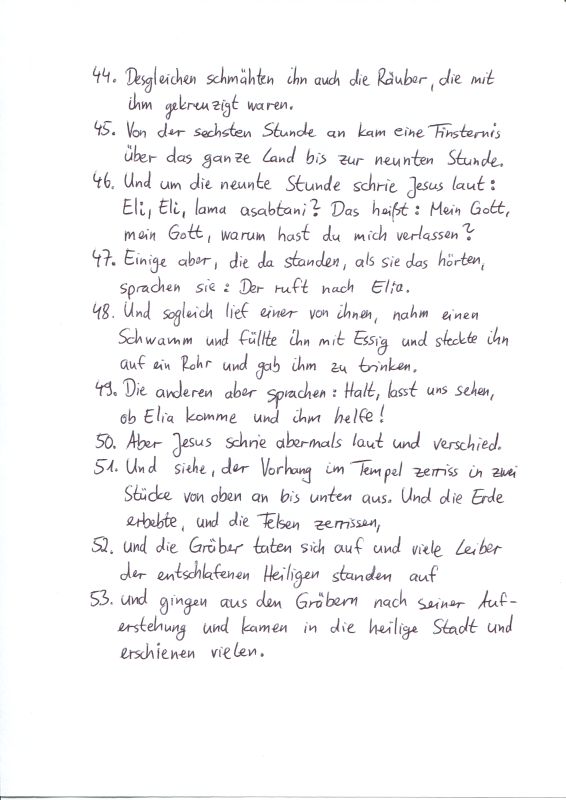 44. Desgleichen schmähten ihn auch die Räuber, die mit
ihm gekreuzigt waren.
45. Von der sechsten Stunde an kam eine Finsternis
über das ganze Land bis zur neunten Stunde.
46. Und um die neunte Stunde schrie Jesus laut:
Eli, Eli, lama asabtani? Das heißt: Mein Gott,
mein Gott, warum hast du mich verlassen?
47. Einige aber, die da standen, als sie das hörten,
sprachen sie: Der ruft nach Elia.
48. Und sogleich lief einer von ihnen, nahm einen
Schwamm und füllte ihn mit Essig und steckte ihn
auf ein Rohr und gab ihm zu trinken.
49. Die anderen aber sprachen: Halt, lasst uns sehen,
ob Elia komme und ihm helfe!
50. Aber Jesus schrie abermals laut und verschied.
51. Und siehe, der Vorhang im Tempel zerriss in zwei
Stücke von oben an bis unten aus. Und die Erde
erbebte, und die Felsen zerrissen,
52. und die Gräber taten sich auf und viele Leiber
der entschlafenen Heiligen standen auf
53. und gingen aus den Gräbern nach seiner Auf-
erstehung und kamen in die heilige Stadt und
erschienen vielen.